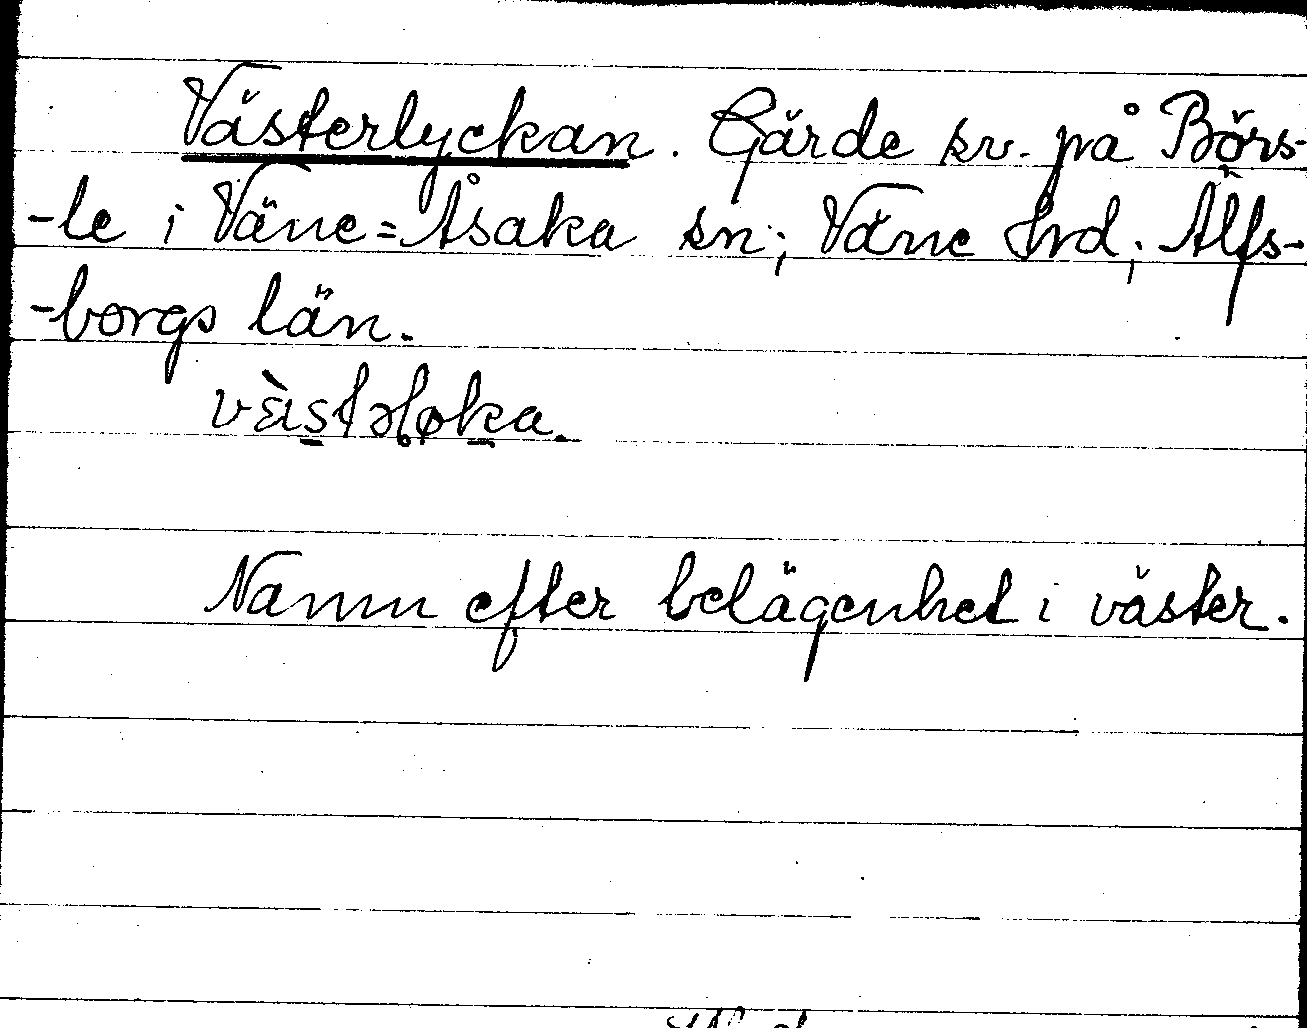 Västerlyckan. Gärde sv. på Börs-
-le i Väne=Åsaka sn; Väne hrd; Älfs-
-borgs län.
Namn efter belägenhet i väster.